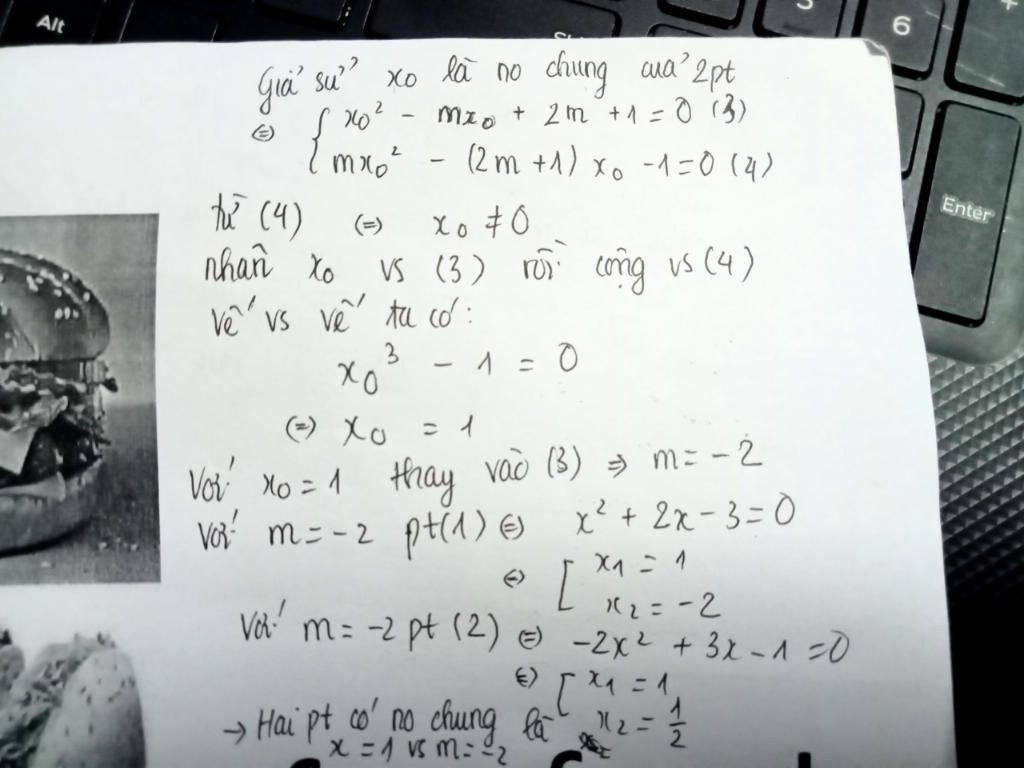 Alt
6
Enter
Giả sử x₀ là no chung của 2pt
(=) { x₀² - mx₀ + 2m + 1 = 0 (3)
mx₀² - (2m + 1) x₀ - 1 = 0 (4)
từ (4) (=) x₀ ≠ 0
nhân x₀ vs (3) rồi cộng vs (4)
vế vs vế ta có:
x₀³ - 1 = 0
(=) x₀ = 1
Với x₀ = 1 thay vào (3) ⇒ m = -2
Với m = -2 pt(1) (=) x² + 2x - 3 = 0
(=) [ x₁ = 1
x₂ = -2
Với m = -2 pt (2) (=) -2x² + 3x - 1 = 0
(=) [ x₁ = 1
x₂ = 1/2
→ Hai pt có no chung là
x = 1 vs m = -2